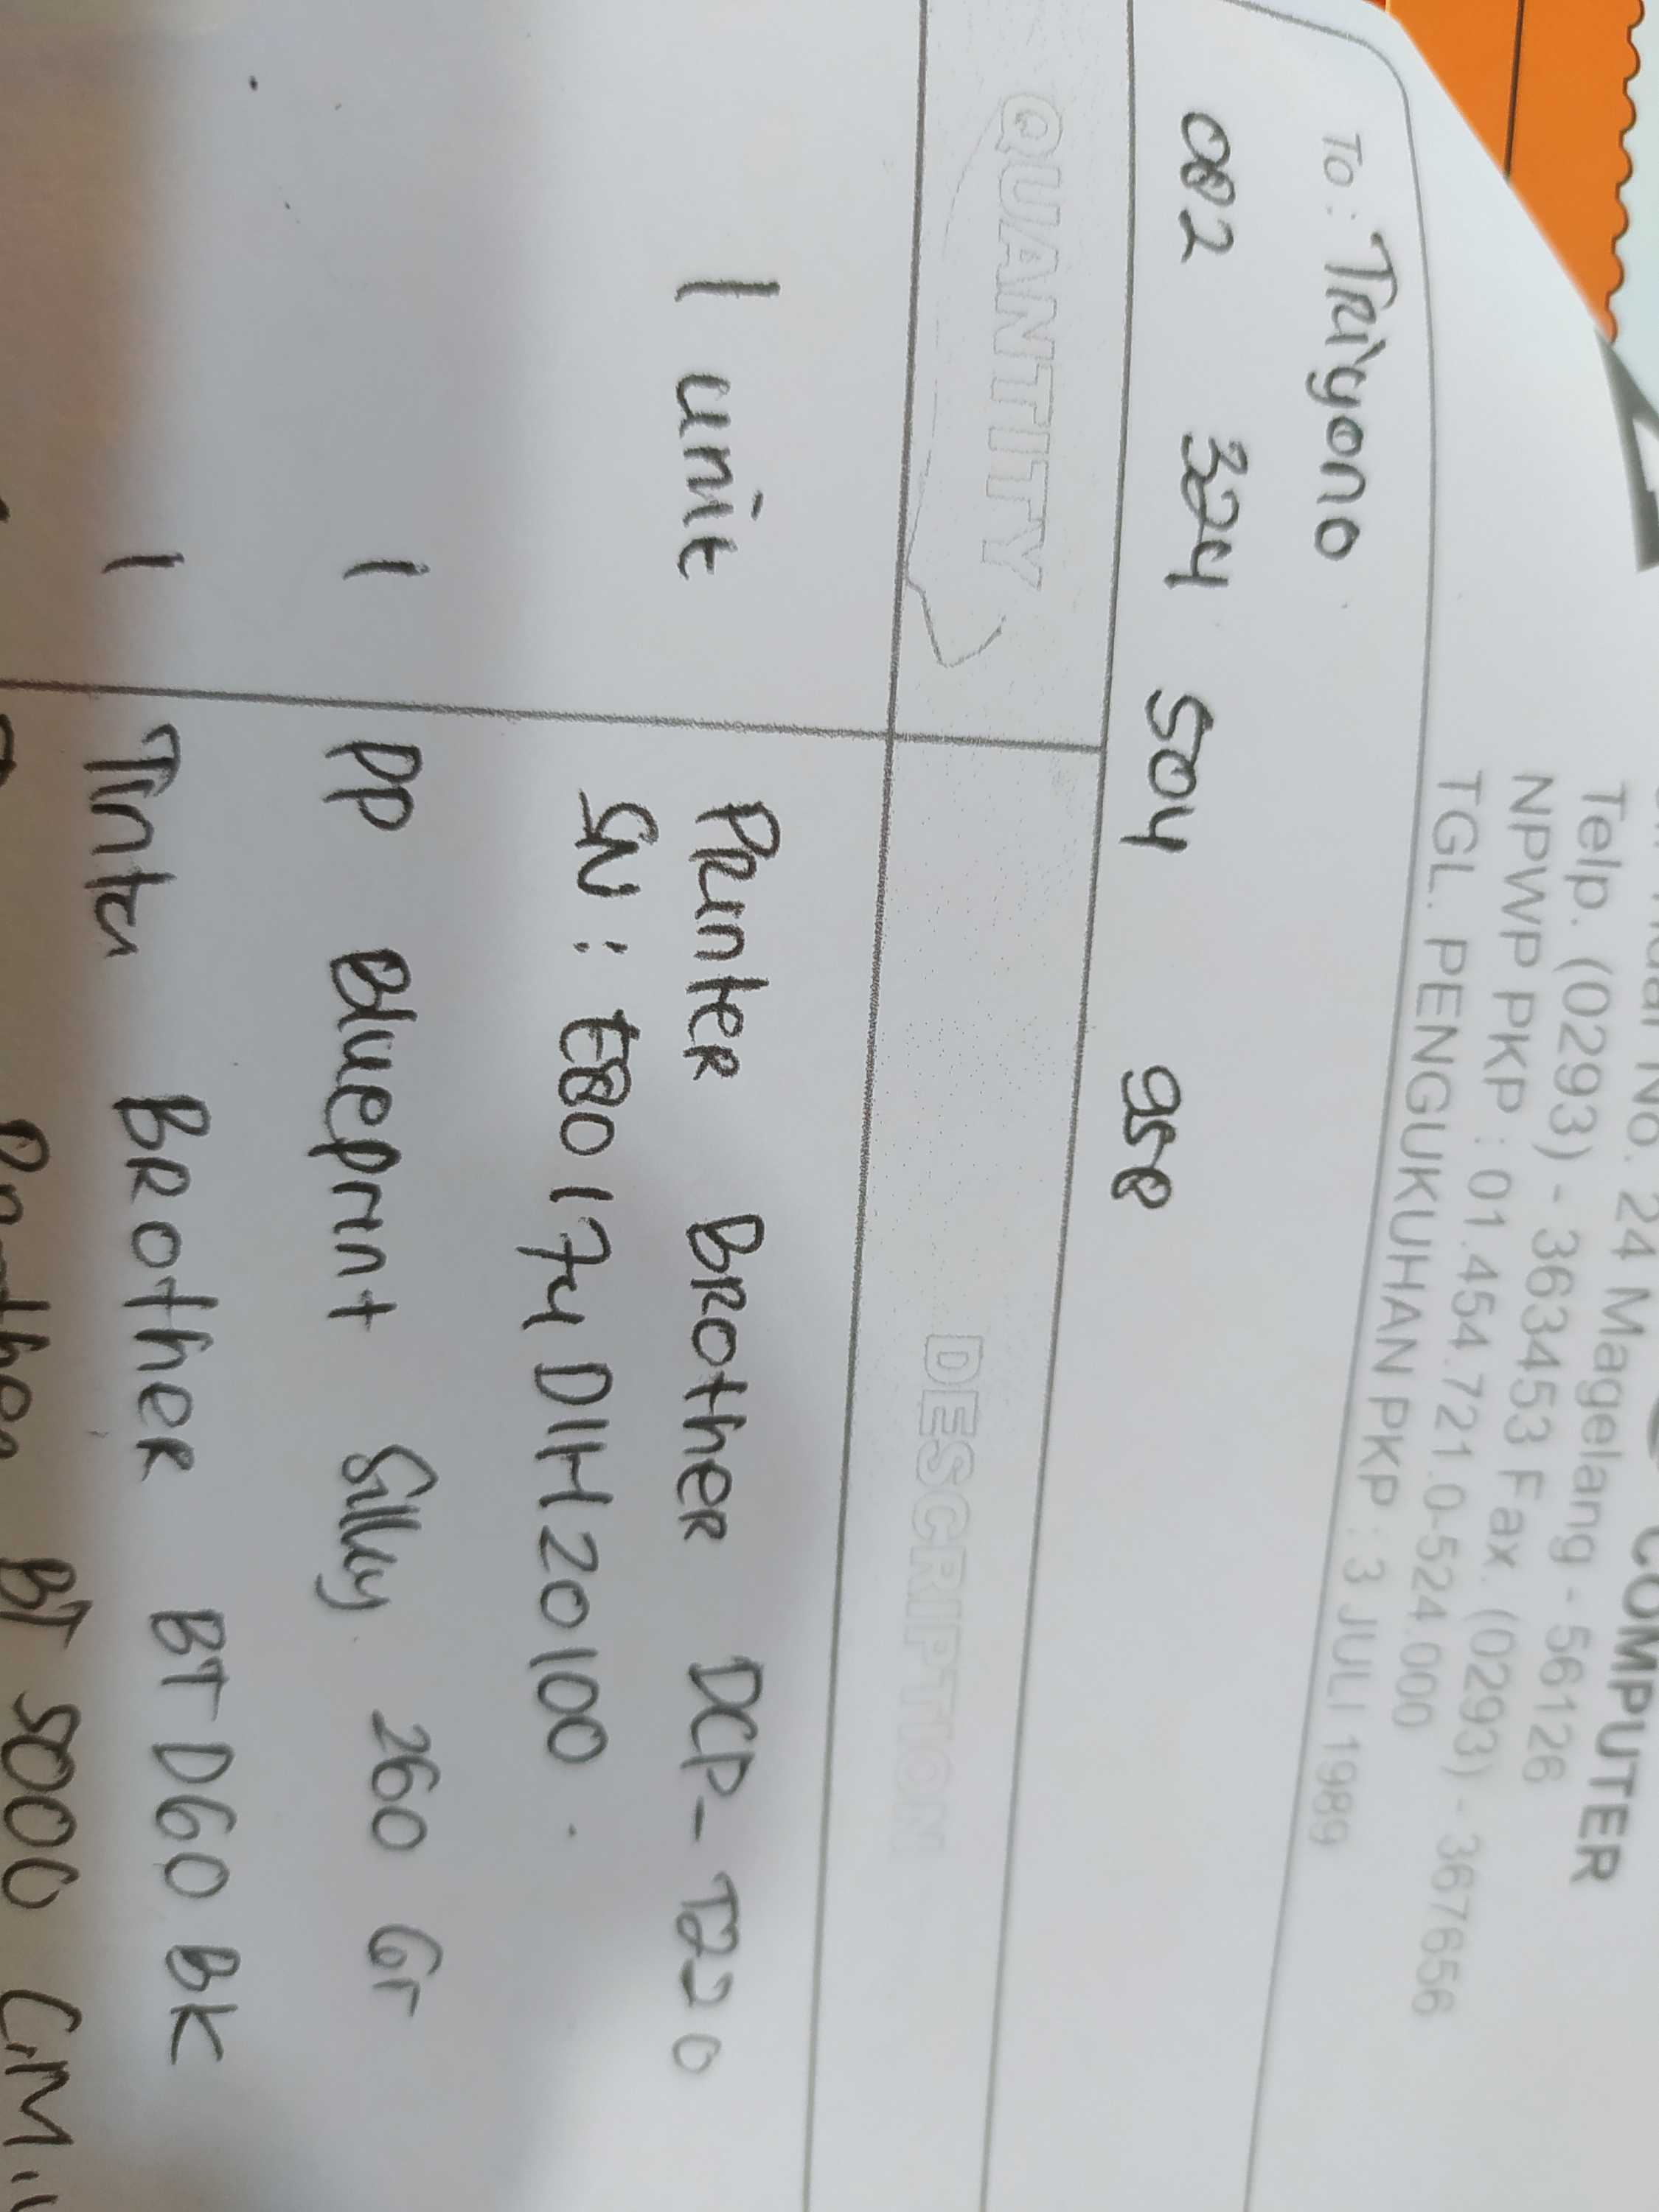 COMPUTER
No. 24 Magelang - 56126
Telp. (0293) - 3634453 Fax. (0293) - 367656
NPWP PKP : 01.454.721.0-524.000
TGL. PENGUKUHAN PKP : 3 JULI 1989
To : Triyono
082 324 504 958
QUANTITY DESCRIPTION
1 unit Printer Brother DCP-T220
SN : E80174D1H20100
1 PP Blueprint Silky 260 Gr
1 Tinta Brother BT D60 BK
Brother BT 5000